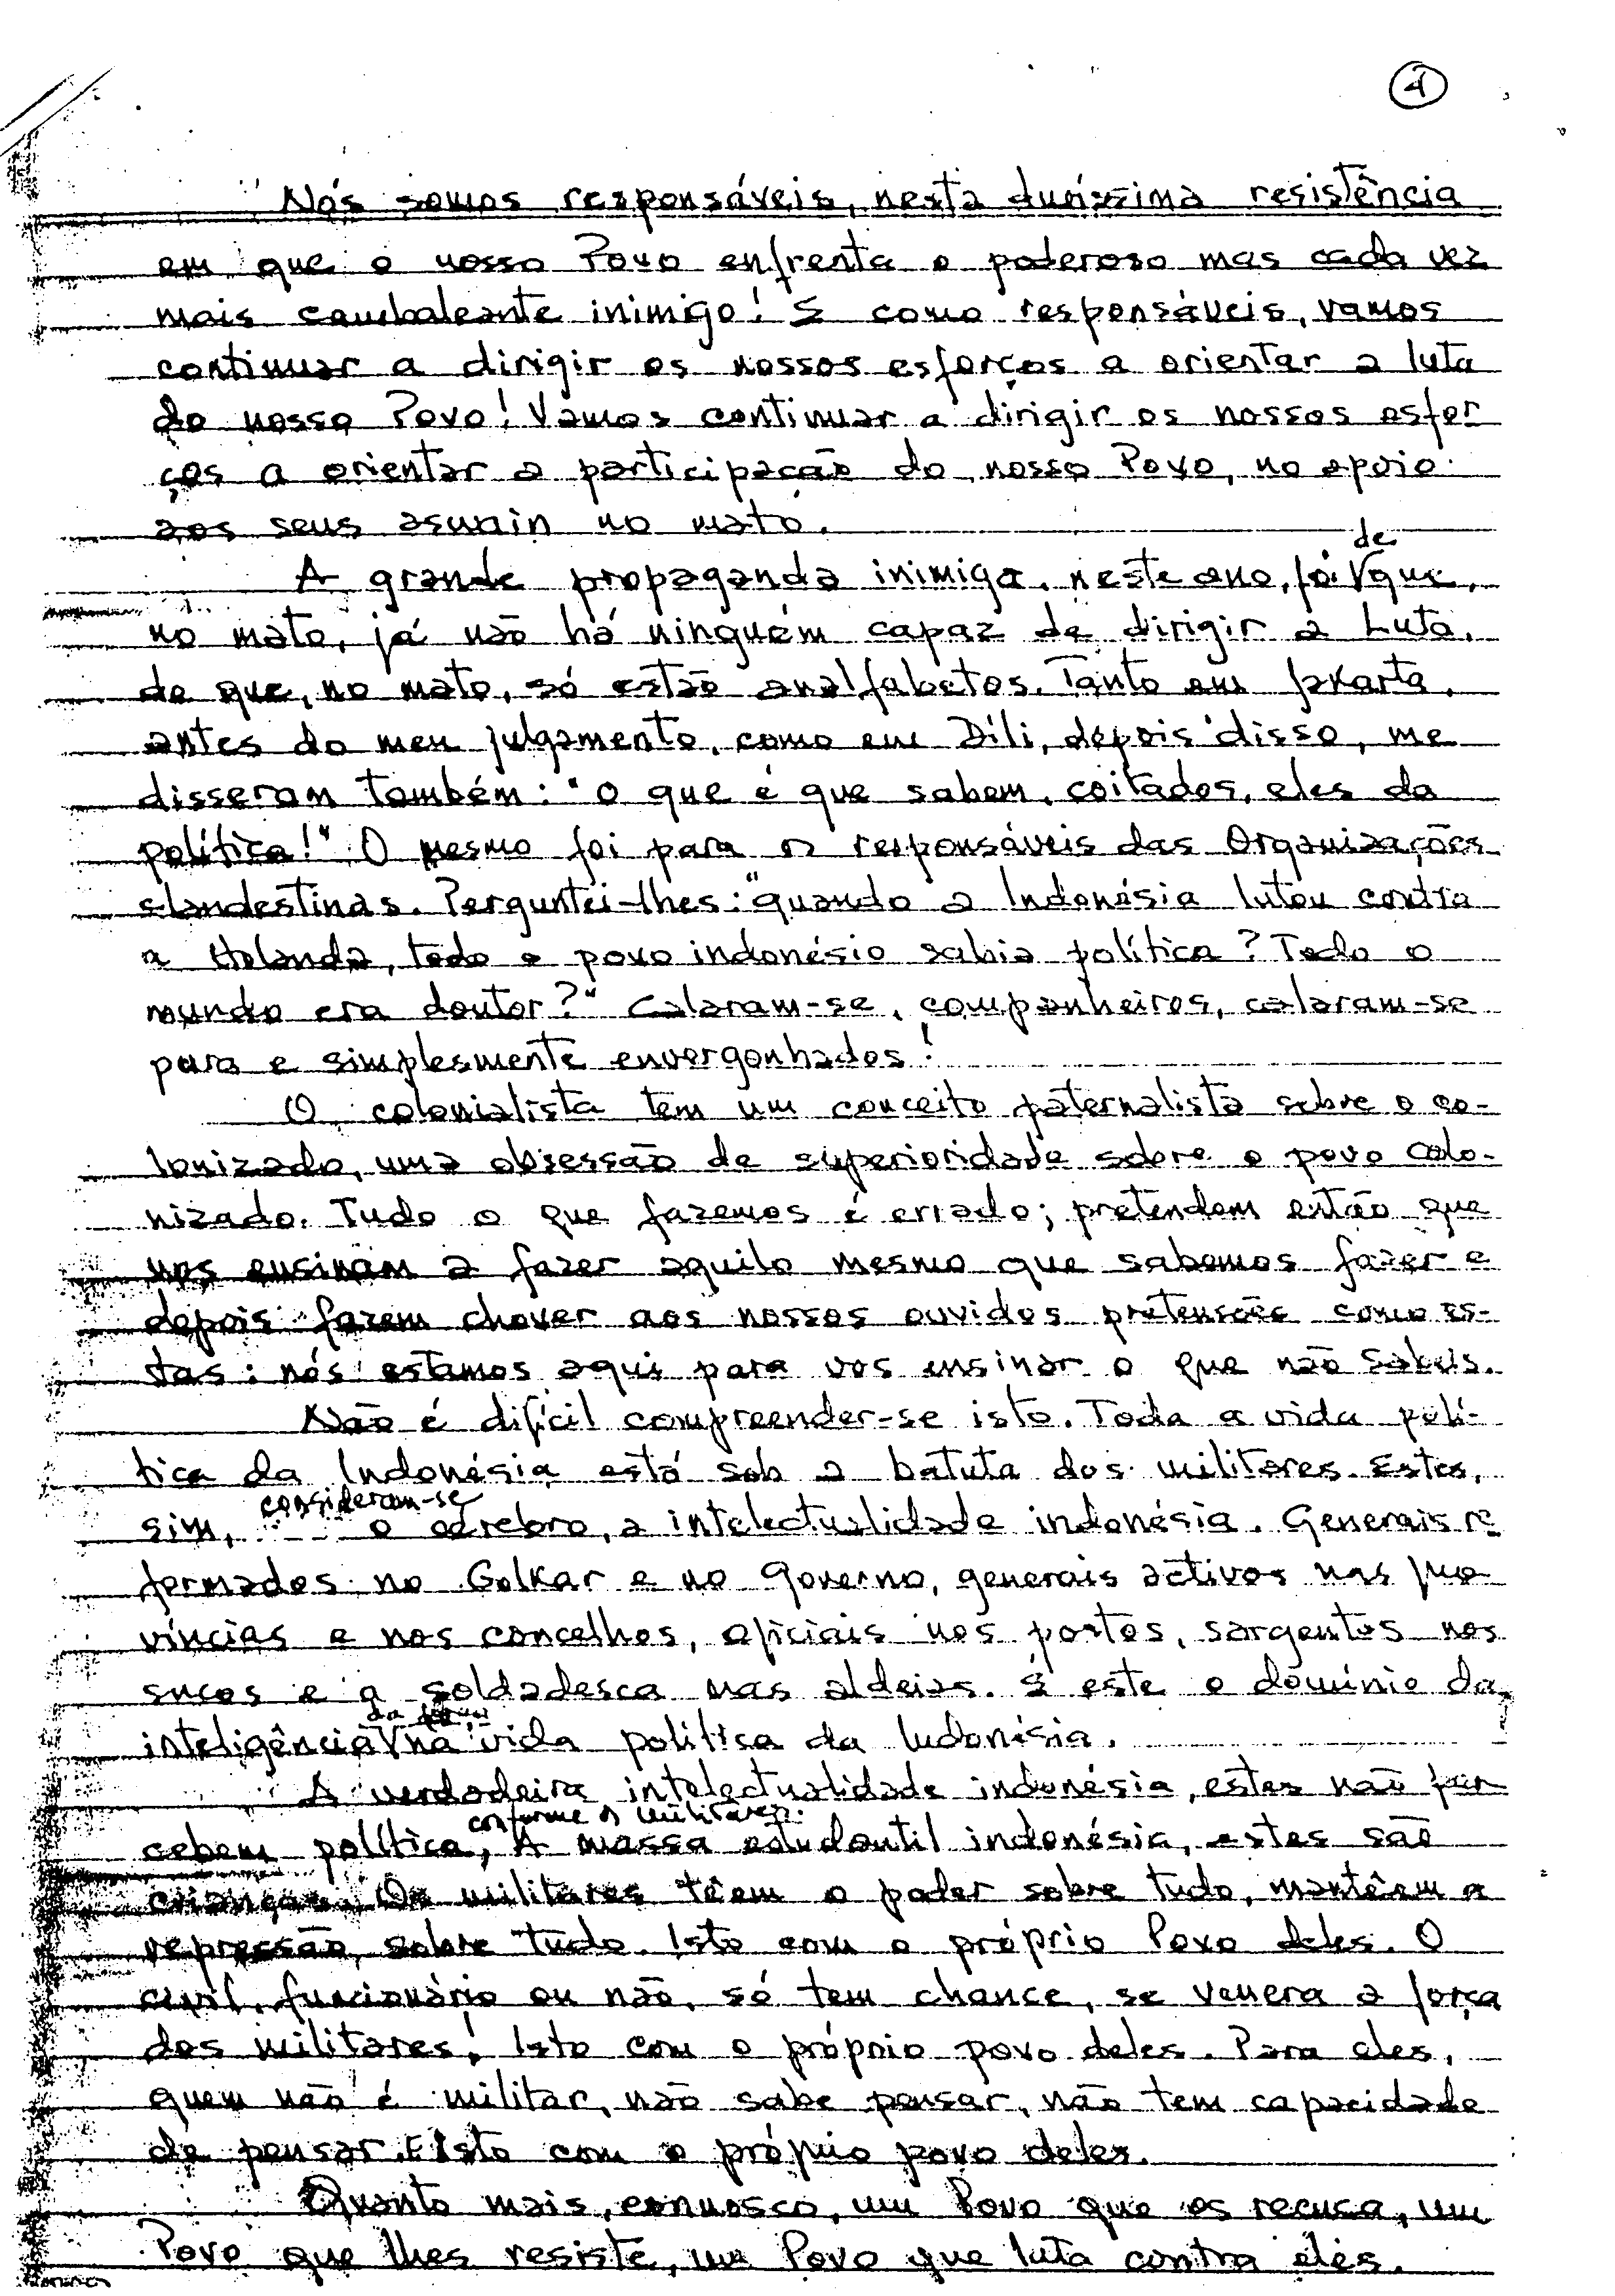 4
Nós somos responsáveis, nesta duríssima resistência
em que o nosso Povo enfrenta o poderoso mas cada vez
mais cambaleante inimigo! E como responsáveis, vamos
continuar a dirigir os nossos esforços a orientar a luta
do nosso Povo! Vamos continuar a dirigir os nossos esfor
ços a orientar a participação do nosso Povo, no apoio
aos seus asuain no mato.
de
A grande propaganda inimiga, neste ano, foi V que,
no mato, já não há ninguém capaz de dirigir a Luta,
de que, no mato, só estão analfabetos. Tanto em Jakarta,
antes do meu julgamento, como em Díli, depois disso, me
disseram também: "o que é que sabem, coitados, eles da
política!" O mesmo foi para os responsáveis das Organizações
clandestinas. Perguntei-lhes: "quando a Indonésia lutou contra
a Holanda, todo o povo indonésio sabia política? Todo o
mundo era doutor?" Calaram-se, companheiros, calaram-se
para e simplesmente envergonhados!
O colonialista tem um conceito paternalista sobre o co-
lonizado, uma obsessão de superioridade sobre o povo colo-
nizado. Tudo o que fazemos é errado; pretendem então que
nos ensinam a fazer aquilo mesmo que sabemos fazer e
depois fazem chover aos nossos ouvidos pretensões como es-
tas: nós estamos aqui para vos ensinar o que não sabeis.
Não é difícil compreender-se isto. Toda a vida polí-
tica da Indonésia está sob a batuta dos militares. Estes,
consideram-se
sim, o cérebro, a intelectualidade indonésia. Generais re
formados no Golkar e no Governo, generais activos nas pro
víncias e nos concelhos, oficiais nos postos, sargentos nos
sucos e a soldadesca nas aldeias. É este o domínio da
da
inteligência V na vida política da Indonésia.
A verdadeira intelectualidade indonésia, estes não per
conforme os militares.
cebem política, A massa estudantil indonésia, estes são
crianças. Os militares têem o poder sobre tudo, mantêem a
repressão sobre tudo. Isto com o próprio Povo deles. O
civil, funcionário ou não, só tem chance, se venera a força
dos militares! Isto com o próprio povo deles. Para eles,
quem não é militar, não sabe pensar, não tem capacidade
de pensar. E isto com o próprio povo deles.
Quanto mais, connosco, um Povo que os recusa, um
Povo que lhes resiste, um Povo que luta contra eles.